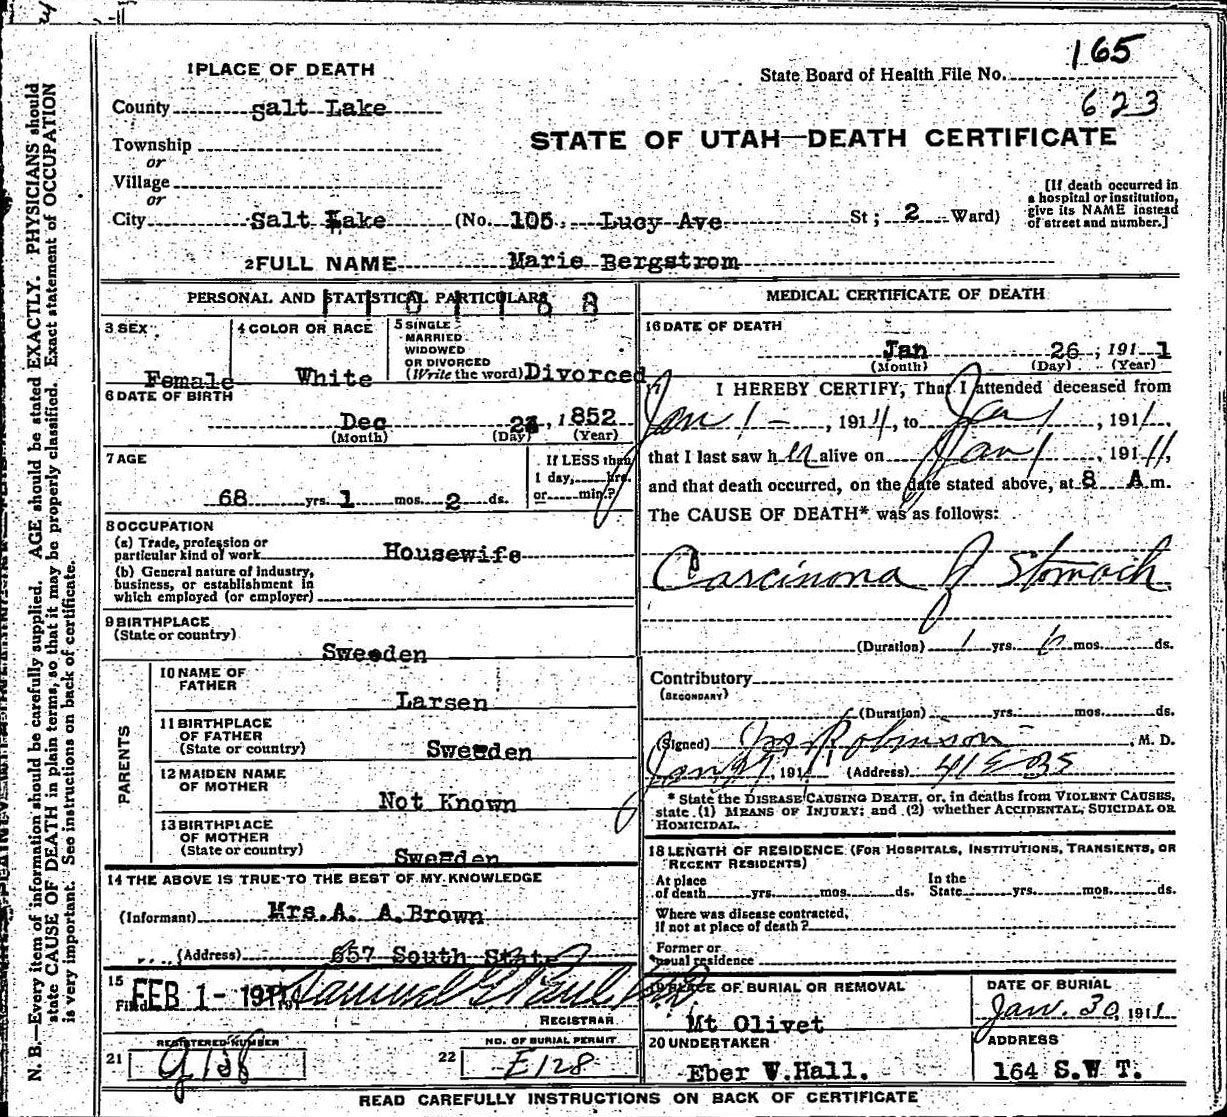 165
State Board of Health File No.
623
1 PLACE OF DEATH
County Salt Lake
STATE OF UTAH—DEATH CERTIFICATE
Township
or
Village
or
City Salt Lake (No. 105 Lucy Ave St; 2 Ward)
[If death occurred in
a hospital or institution,
give its NAME instead
of street and number.]
2 FULL NAME Marie Bergstrom
PERSONAL AND STATISTICAL PARTICULARS
3 SEX
Female
4 COLOR OR RACE
White
5 SINGLE
MARRIED
WIDOWED
OR DIVORCED
(Write the word) Divorced
6 DATE OF BIRTH
Dec , 1852
(Month) (Day) (Year)
7 AGE
68 yrs. 1 mos. 2 ds.
If LESS than
1 day, hrs.
or min.?
8 OCCUPATION
(a) Trade, profession or
particular kind of work Housewife
(b) General nature of industry,
business, or establishment in
which employed (or employer)
9 BIRTHPLACE
(State or country)
Sweeden
PARENTS
10 NAME OF
FATHER
Larsen
11 BIRTHPLACE
OF FATHER
(State or country) Sweeden
12 MAIDEN NAME
OF MOTHER
Not Known
13 BIRTHPLACE
OF MOTHER
(State or country)
Sweeden
14 THE ABOVE IS TRUE TO THE BEST OF MY KNOWLEDGE
(Informant) Mrs. A. A. Brown
(Address) 657 South State
15
Filed FEB 1 - 1911
REGISTRAR
REGISTERED NUMBER
21 138
NO. OF BURIAL PERMIT
22 E128
MEDICAL CERTIFICATE OF DEATH
16 DATE OF DEATH
Jan 26, 1911
(Month) (Day) (Year)
17 I HEREBY CERTIFY, That I attended deceased from
Jan 1 - , 1911, to Jan , 191
that I last saw her alive on Jan , 1911,
and that death occurred, on the date stated above, at 8 A m.
The CAUSE OF DEATH* was as follows:
Carcinona of Stomach
(Duration) 1 yrs. 6 mos. ds.
Contributory
(SECONDARY)
(Duration) yrs. mos. ds.
(Signed) Robinson, M. D.
Jan 27, 191 (Address)
* State the DISEASE CAUSING DEATH, or, in deaths from VIOLENT CAUSES,
state (1) MEANS OF INJURY; and (2) whether ACCIDENTAL, SUICIDAL OR
HOMICIDAL.
18 LENGTH OF RESIDENCE (FOR HOSPITALS, INSTITUTIONS, TRANSIENTS, OR
RECENT RESIDENTS)
At place
of death yrs. mos. ds.
In the
State yrs. mos. ds.
Where was disease contracted,
if not at place of death?
Former or
usual residence
19 PLACE OF BURIAL OR REMOVAL
Mt Olivet
DATE OF BURIAL
Jan. 30, 1911
20 UNDERTAKER
Eber W. Hall.
ADDRESS
164 S.W T.
READ CAREFULLY INSTRUCTIONS ON BACK OF CERTIFICATE
N. B.—Every item of information should be carefully supplied. AGE should be stated EXACTLY. PHYSICIANS should
state CAUSE OF DEATH in plain terms, so that it may be properly classified. Exact statement of OCCUPATION
is very important. See instructions on back of certificate.